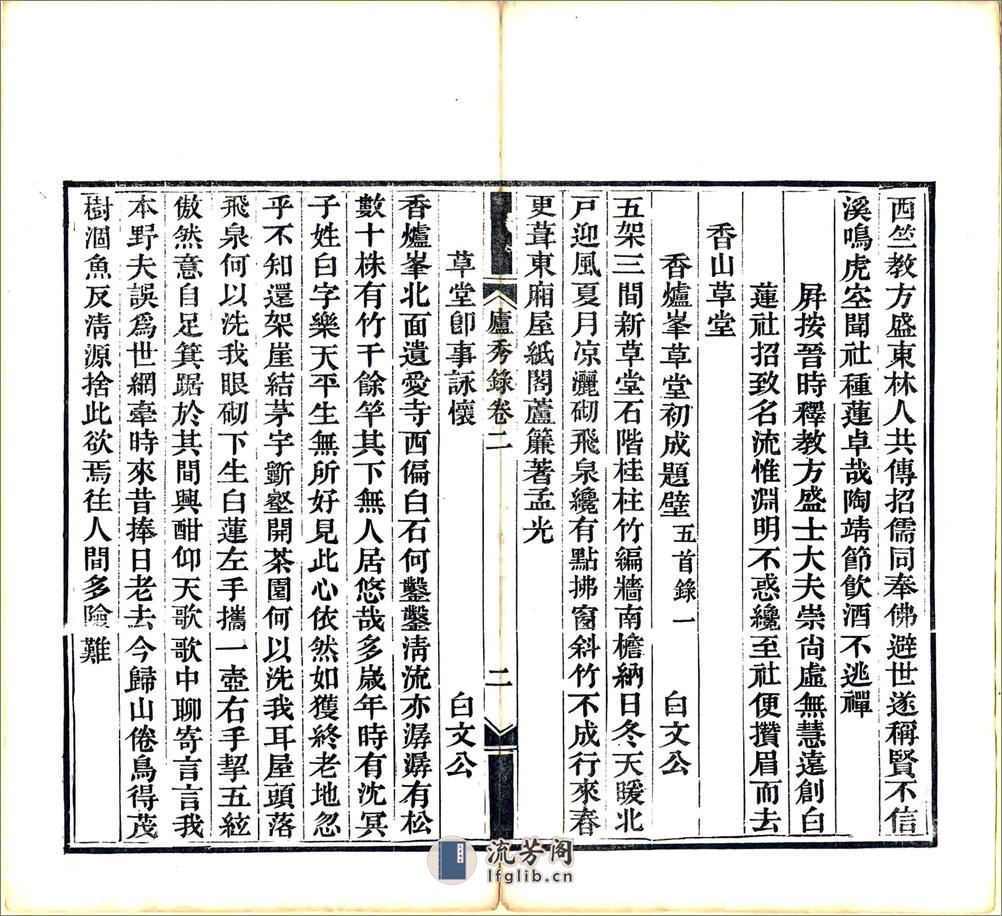 西竺教方盛東林人共傳招儒同奉佛避世遂稱賢不信
溪鳴虎空聞社種蓮卓哉陶靖節飲酒不逃禪
屛按晉時釋教方盛士大夫崇尙虛無慧遠創白
蓮社招致名流惟淵明不惑纔至社便攢眉而去
香山草堂
香爐峯草堂初成題壁五首錄一 白文公
五架三間新草堂石階桂柱竹編牆南檐納日冬天暖北
戸迎風夏月凉灑砌飛泉纔有點拂窗斜竹不成行來春
更葺東廂屋紙閣蘆簾著孟光
廬秀錄卷二 二
草堂卽事詠懷 白文公
香爐峯北面遺愛寺西偏白石何鑿鑿淸流亦潺潺有松
數十株有竹千餘竿其下無人居悠哉多歲年時有沈冥
子姓白字樂天平生無所好見此心依然如獲終老地忽
乎不知還架崖結茅宇斵壑開茶園何以洗我耳屋頭落
飛泉何以洗我眼砌下生白蓮左手攜一壺右手挈五絃
傲然意自足箕踞於其間興酣仰天歌歌中聊寄言言我
本野夫誤爲世網牽時來昔捧日老去今歸山倦鳥得茂
樹涸魚反淸源捨此欲焉往人間多險難
流芳阁
lfglib.cn